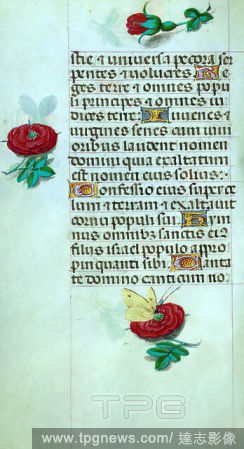 stie et universa pecora ser
pentes et volucres Re
ges terre et omnes popu
li principes et omnes iu
dices terre Iuvenes et
virgines senes cum iuni
oribus laudent nomen
domini quia exaltatum
est nomen eius solius:
Confessio eius super ce
lum et terram et exaltavit
cornu populi sui Hym
nus omnibus sanctis eius
filiis israel populo appro
pinquanti sibi Canta
te domino canticum no
TPG
www.tpgnews.com / 達志影像